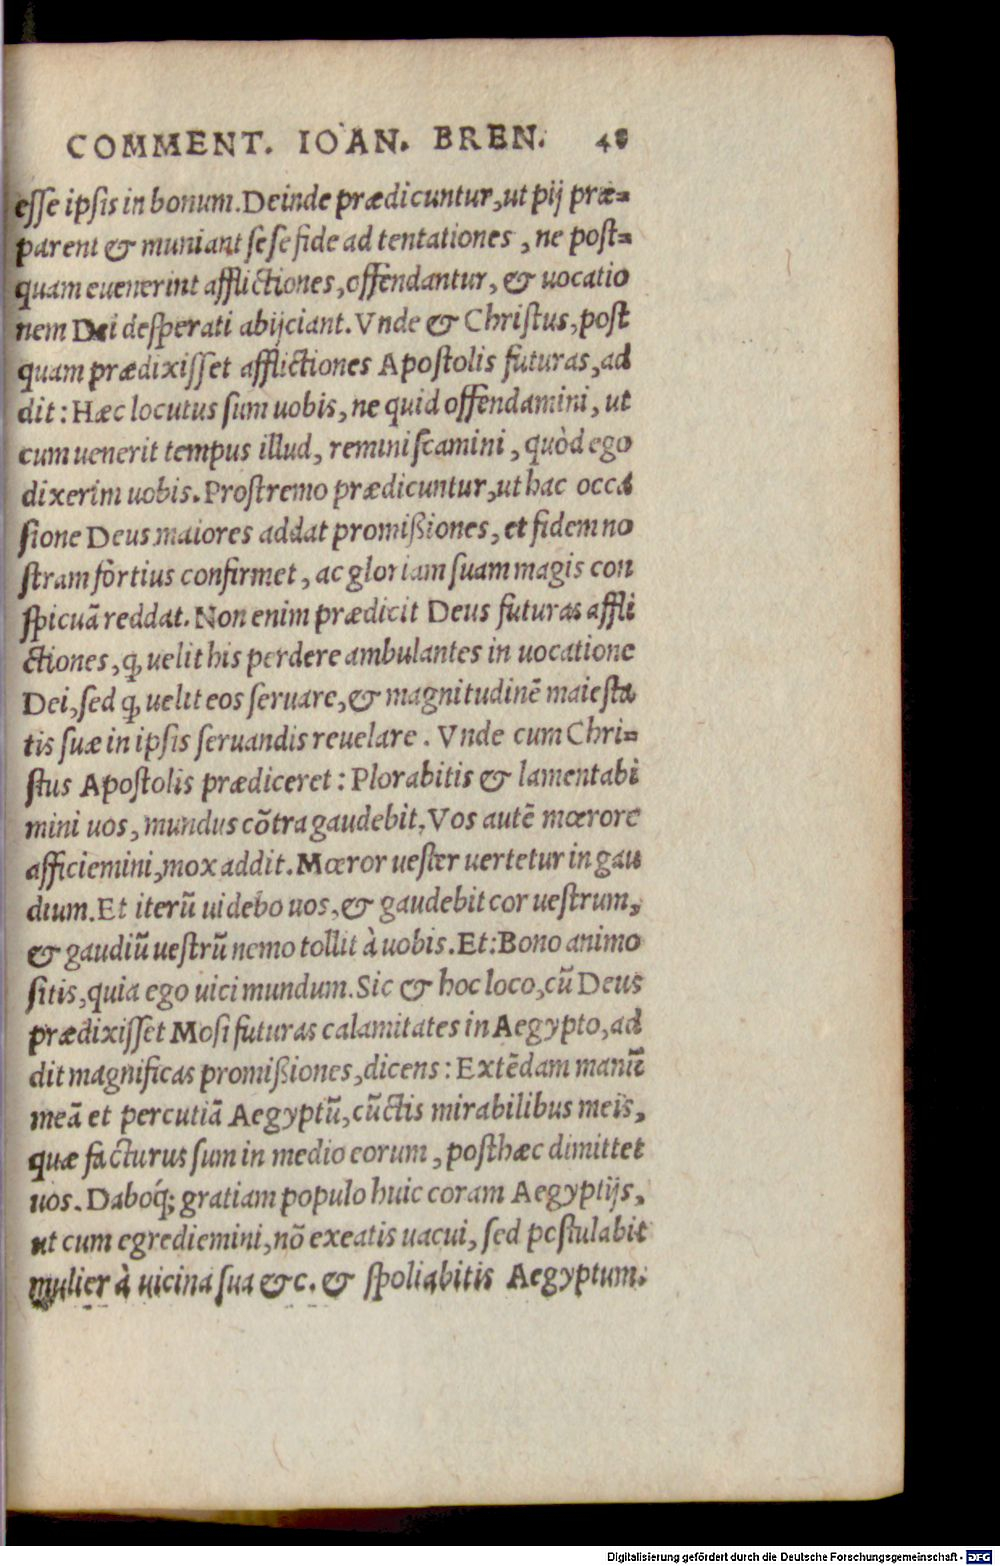 COMMENT. IOAN. BREN. 48
eſſe ipſis in bonum. Deinde prædicuntur, ut pij præ=
parent & muniant ſeſe fide ad tentationes, ne poſt=
quam euenerint afflictiones, offendantur, & uocatio
nem Dei deſperati abijciant. Vnde & Chriſtus, poſt
quam prædixiſſet afflictiones Apoſtolis futuras, ad
dit: Hæc locutus ſum uobis, ne quid offendamini, ut
cum uenerit tempus illud, reminiſcamini, quòd ego
dixerim uobis. Proſtremo prædicuntur, ut hac occa
ſione Deus maiores addat promißiones, et fidem no
ſtram fortius confirmet, ac gloriam ſuam magis con
ſpicuā reddat. Non enim prædicit Deus futuras affli
ctiones, ꝙ uelit his perdere ambulantes in uocatione
Dei, ſed ꝙ uelit eos ſeruare, & magnitudinē maieſta
tis ſuæ in ipſis ſeruandis reuelare. Vnde cum Chri=
ſtus Apoſtolis prædiceret: Plorabitis & lamentabi
mini uos, mundus cōtra gaudebit. Vos autē mœrore
afficiemini, mox addit. Mœror ueſter uertetur in gau
dium. Et iterū uidebo uos, & gaudebit cor ueſtrum,
& gaudiū ueſtrū nemo tollit à uobis. Et: Bono animo
ſitis, quia ego uici mundum. Sic & hoc loco, cū Deus
prædixiſſet Moſi futuras calamitates in Aegypto, ad
dit magnificas promißiones, dicens: Extēdam manū
meā et percutiā Aegyptū, cūctis mirabilibus meis,
quæ facturus ſum in medio eorum, poſthæc dimittet
uos. Daboq́; gratiam populo huic coram Aegyptijs,
ut cum egrediemini, nō exeatis uacui, ſed poſtulabit
mulier à uicina ſua &c. & ſpoliabitis Aegyptum.
Digitalisierung gefördert durch die Deutsche Forschungsgemeinschaft - DFG